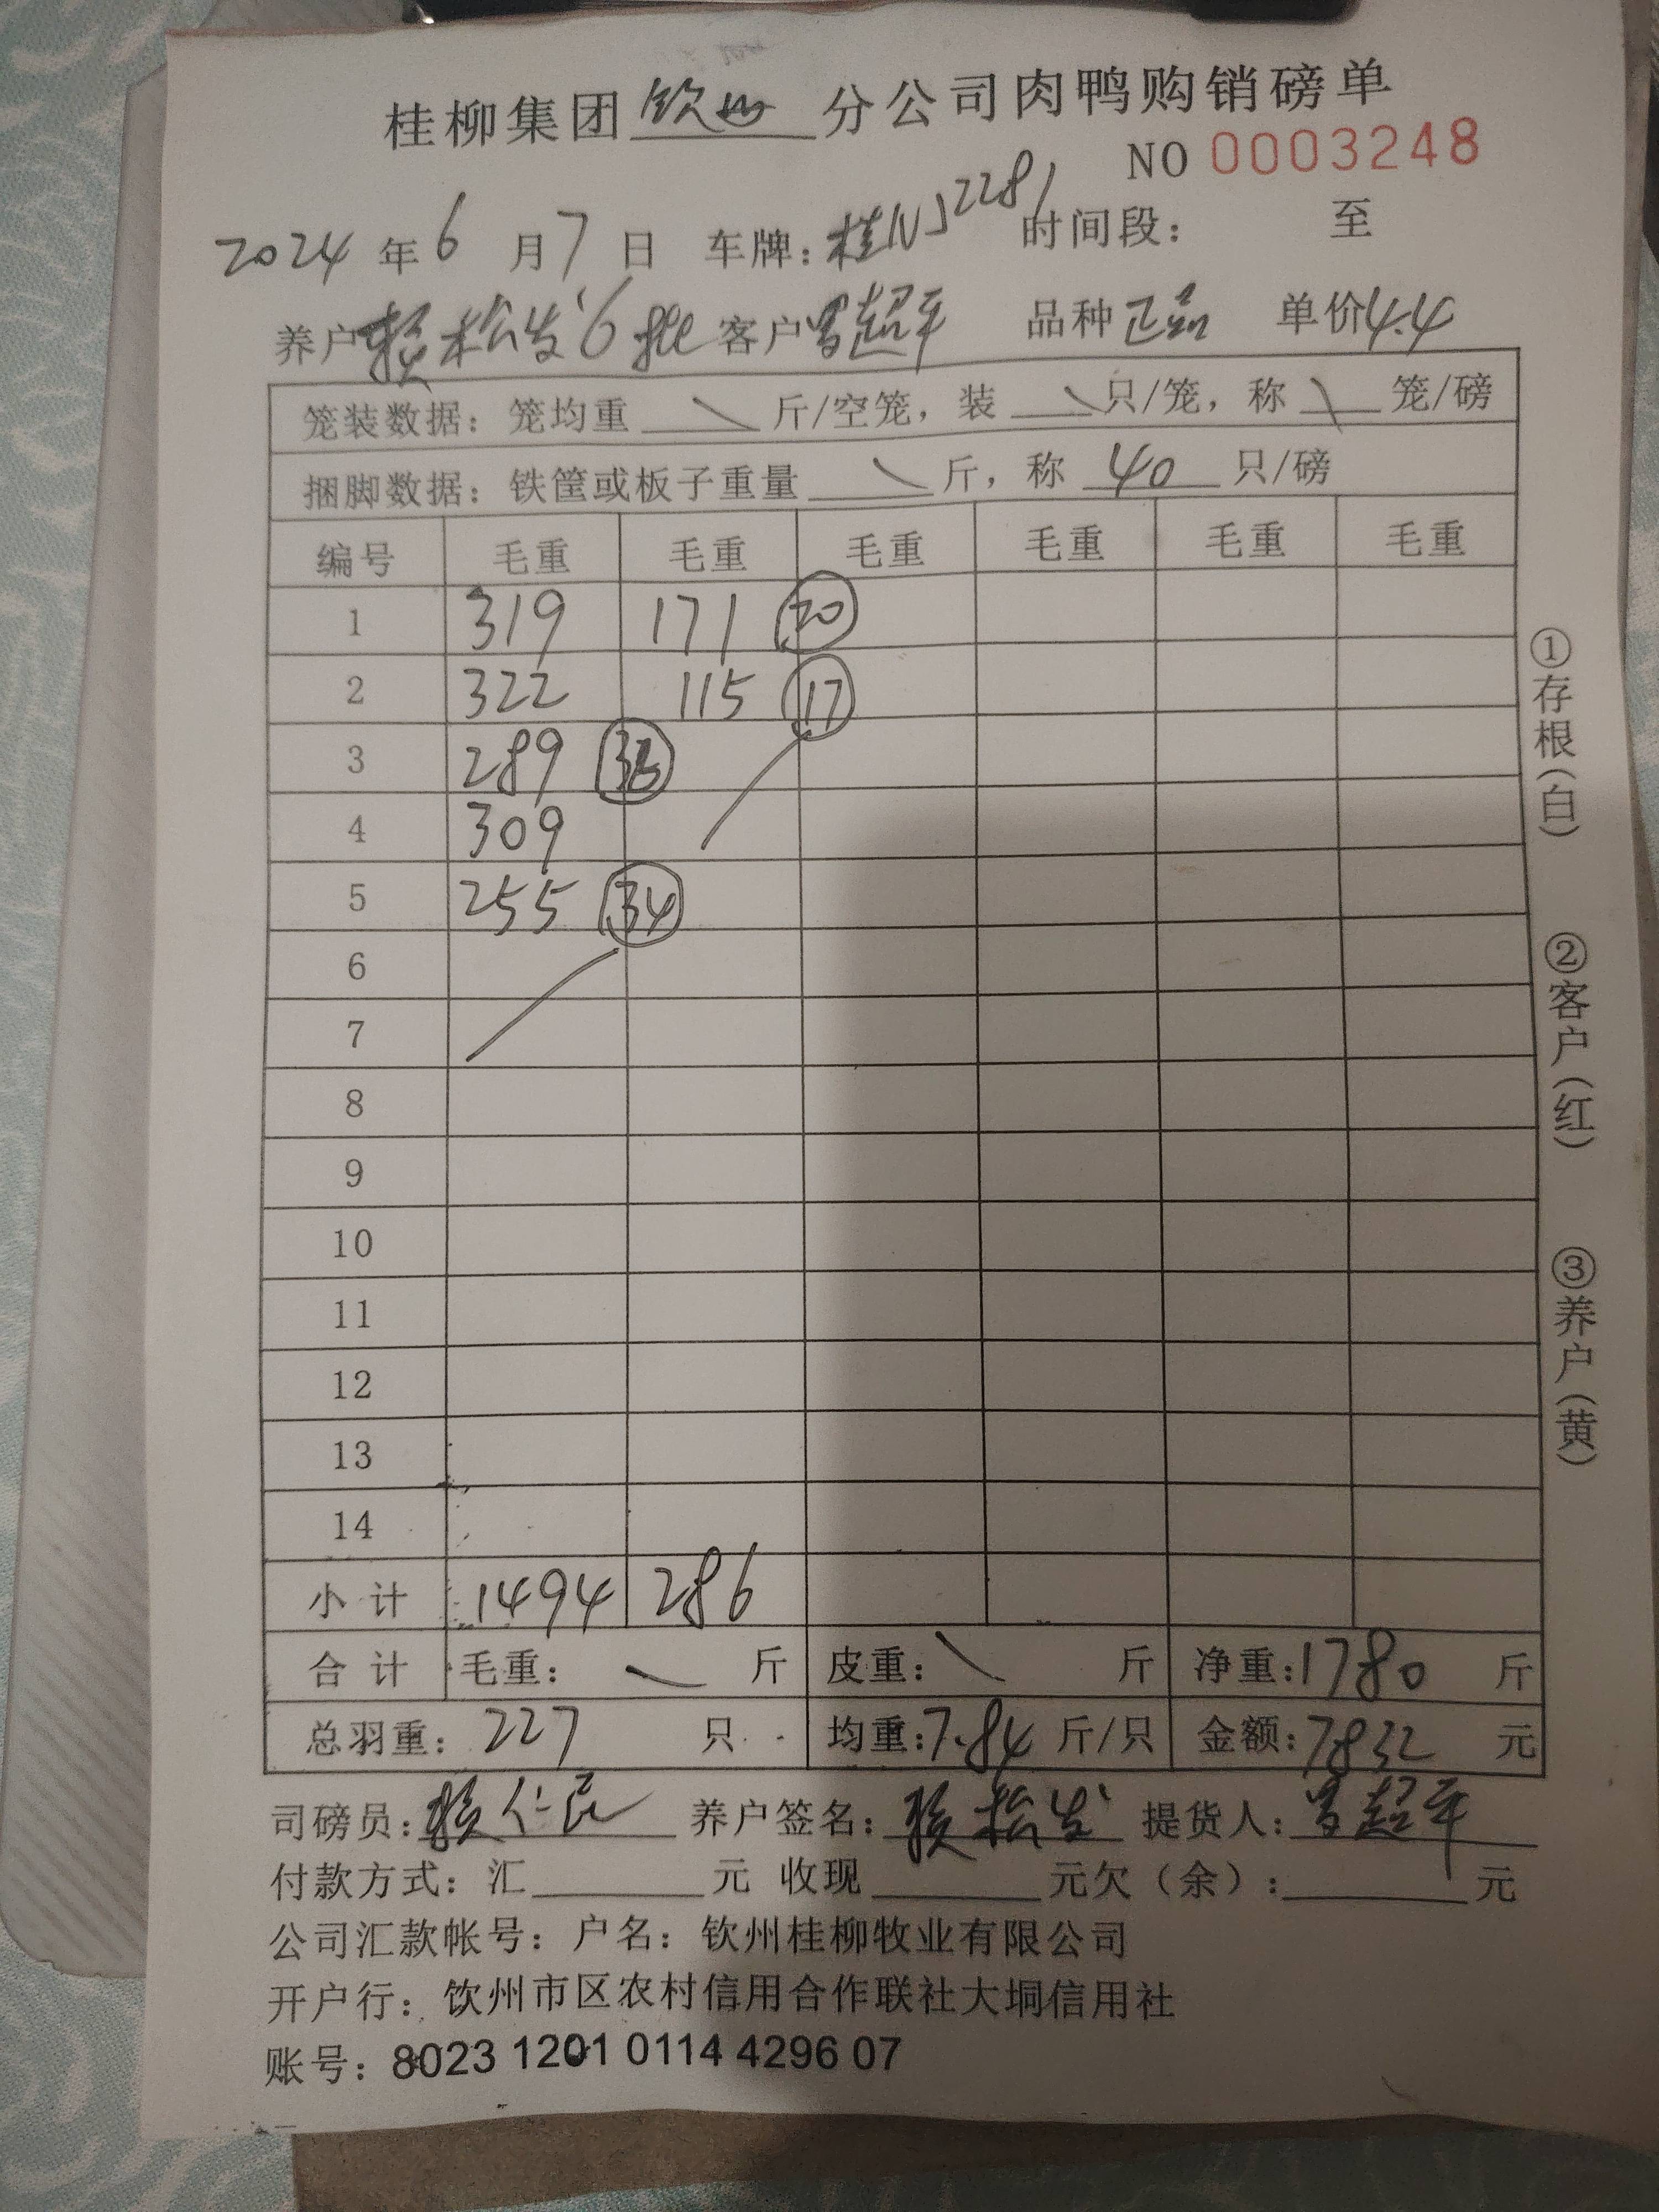 桂柳集团 钦州 分公司肉鸭购销磅单
NO 0003248
2024 年 6 月 7 日 车牌：桂NJ2281 时间段： 至
养户 赖松发 6批 客户 罗超平 品种 正品 单价 4.4
笼装数据：笼均重 \ 斤/空笼，装 \ 只/笼，称 \ 笼/磅
捆脚数据：铁筐或板子重量 \ 斤，称 40 只/磅
编号 毛重 毛重 毛重 毛重 毛重 毛重
1 319 171 20
2 322 115 17
3 289 36
4 309
5 255 34
6
7
8
9
10
11
12
13
14
小计 1494 286
合计 毛重： \ 斤 皮重： \ 斤 净重：1780 斤
总羽重：227 只 均重：7.84 斤/只 金额：7832 元
司磅员：赖仁民 养户签名：赖松发 提货人：罗超平
付款方式：汇 元 收现 元欠（余）： 元
公司汇款帐号：户名：钦州桂柳牧业有限公司
开户行：钦州市区农村信用合作联社大垌信用社
账号：8023 1201 0114 4296 07
①存根（白）
②客户（红）
③养户（黄）